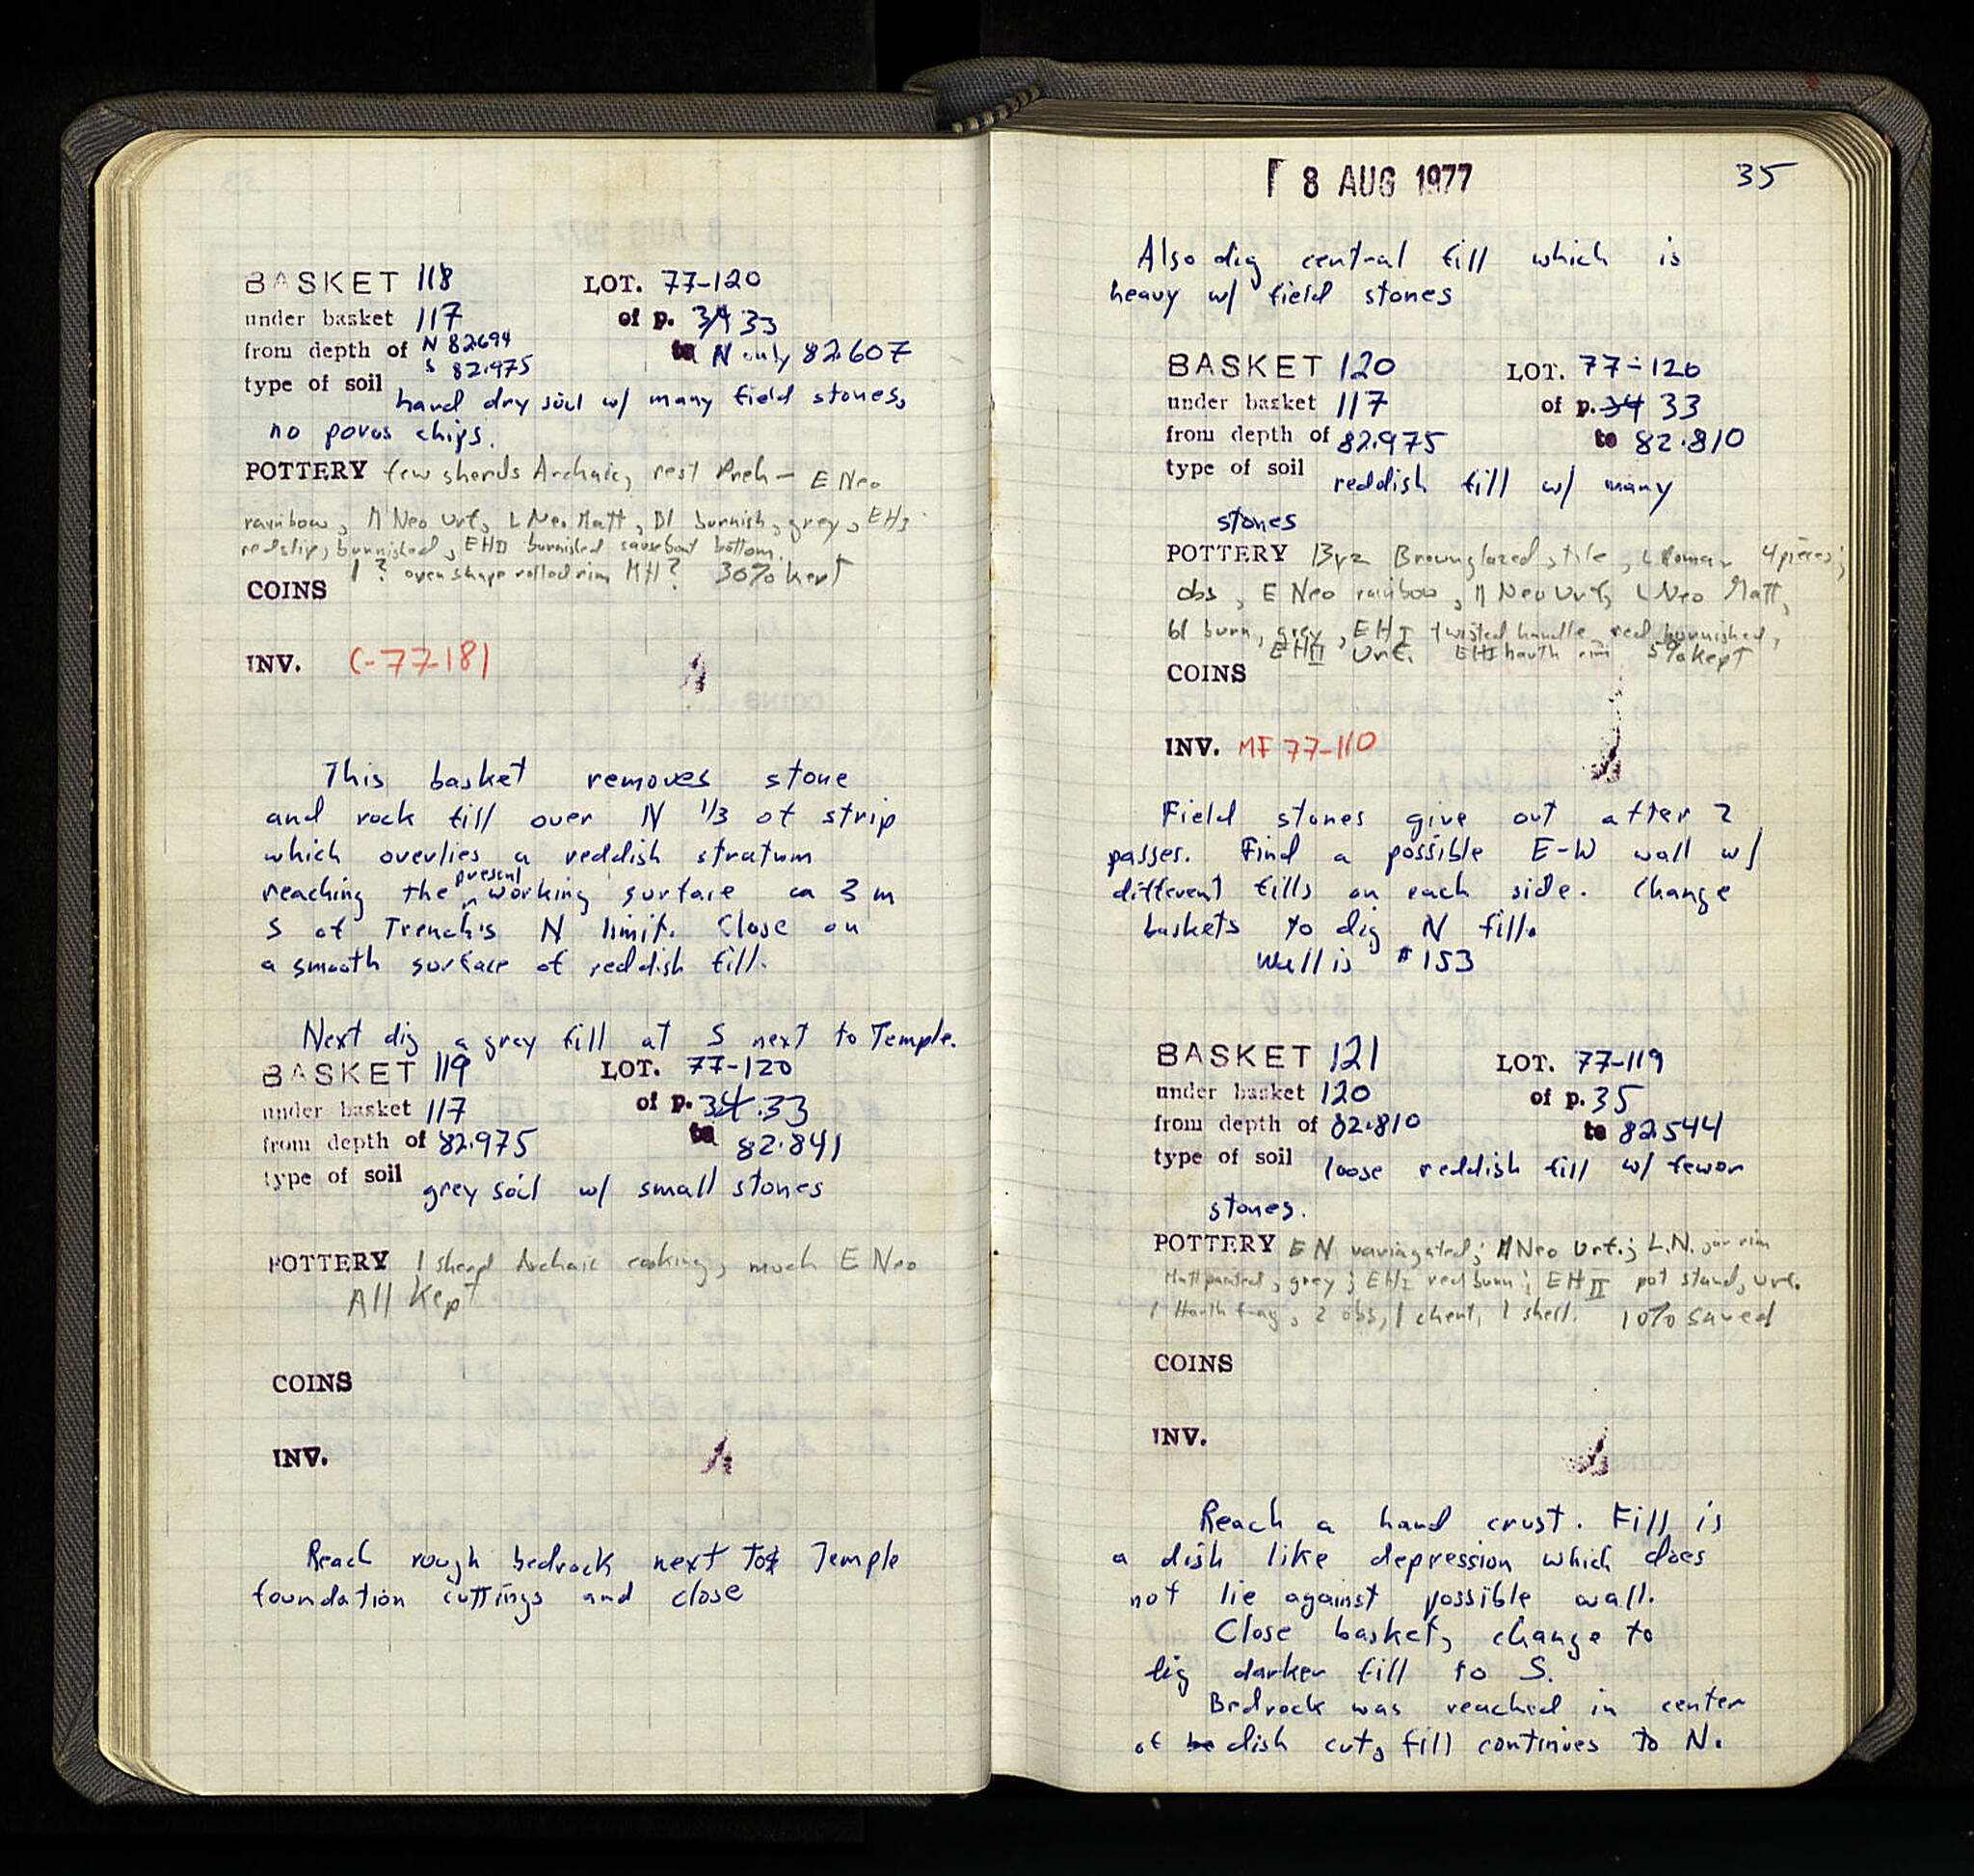 BASKET 118 LOT. 77-120
under basket 117 of p. 34 33
from depth of N 82.694 to N only 82.607
S 82.975
type of soil hard dry soil w/ many field stones,
no poros chips.
POTTERY few sherds Archaic, rest Preh- E Neo
rainbow, M Neo Urf, L Neo Matt, Bl burnish, grey, EHI
redslip, burnished, EHII burnished sauceboat bottom.
1 ? oven shape rolled rim MH? 30% kept
COINS
INV. C-77-181
This basket removes stone
and rock fill over N 1/3 of strip
which overlies a reddish stratum
reaching the present working surface ca 3 m
S of Trench's N limit. Close on
a smooth surface of reddish fill.
Next dig a grey fill at S next to Temple.
BASKET 119 LOT. 77-120
under basket 117 of p. 34. 33
from depth of 82.975 to 82.841
type of soil grey soil w/ small stones
POTTERY 1 sherd Archaic cooking, much E Neo
All kept
COINS
INV.
Reach rough bedrock next to Temple
foundation cuttings and close
8 AUG 1977 35
Also dig central fill which is
heavy w/ field stones
BASKET 120 LOT. 77-120
under basket 117 of p. 34 33
from depth of 82.975 to 82.810
type of soil reddish fill w/ many
stones
POTTERY Byz Brownglazed stile, L Roman 4 pieces;
obs, E Neo rainbow, M Neo Urf, L Neo Matt,
bl burn, grey, EHI twisted handle, red burnished,
EHII Urf. EHI hearth rim 5% kept
COINS
INV. MF 77-110
Field stones give out after 2
passes. Find a possible E-W wall w/
different fills on each side. Change
baskets to dig N fill.
Wall is #153
BASKET 121 LOT. 77-119
under basket 120 of p. 35
from depth of 82.810 to 82.544
type of soil loose reddish fill w/ fewer
stones.
POTTERY EN variagated; MNeo Urf.; L.N. jar rim
Mattpainted, grey; EHI red burn; EHII pot stand, Urf.
1 Hearth frag, 2 obs, 1 chert, 1 shell. 10% saved
COINS
INV.
Reach a hard crust. Fill is
a dish like depression which does
not lie against possible wall.
Close basket, change to
dig darker fill to S.
Bedrock was reached in center
of dish cut, fill continues to N.